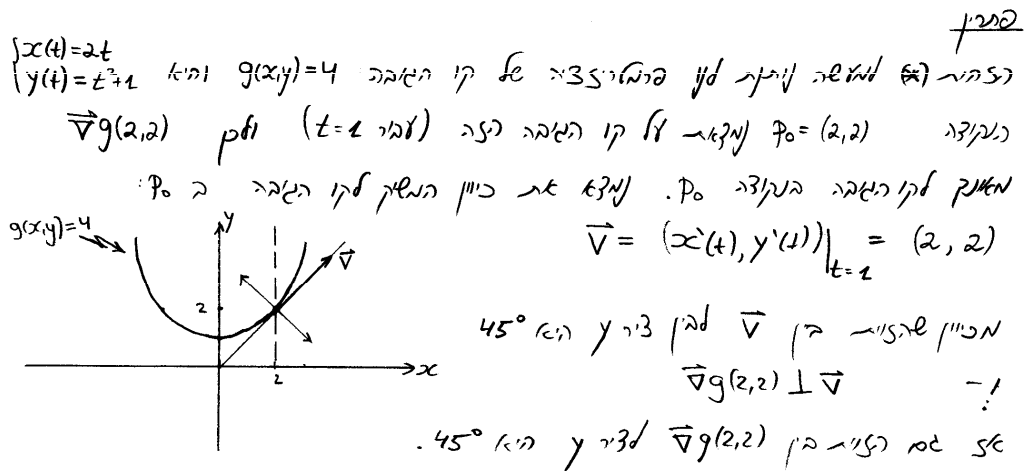 פתרון
הזהות (*) למעשה נותנת לנו פרמטריזציה של קו הגובה g(x,y)=4 והיא { x(t)=2t y(t)=t²+1
הנקודה P₀=(2,2) נמצאת על קו הגובה הזה (עבור t=1) ולכן ∇g(2,2)
מאונך לקו הגובה בנקודה P₀. נמצא את כיוון המשיק לקו הגובה ב P₀:
V = (x'(t), y'(t))|t=1 = (2, 2)
מכיוון שהזוית בין V לבין ציר y היא 45°
ו- ∇g(2,2) ⊥ V
אז גם הזוית בין ∇g(2,2) לציר y היא 45°.
g(x,y)=4
y
V
2
x
2